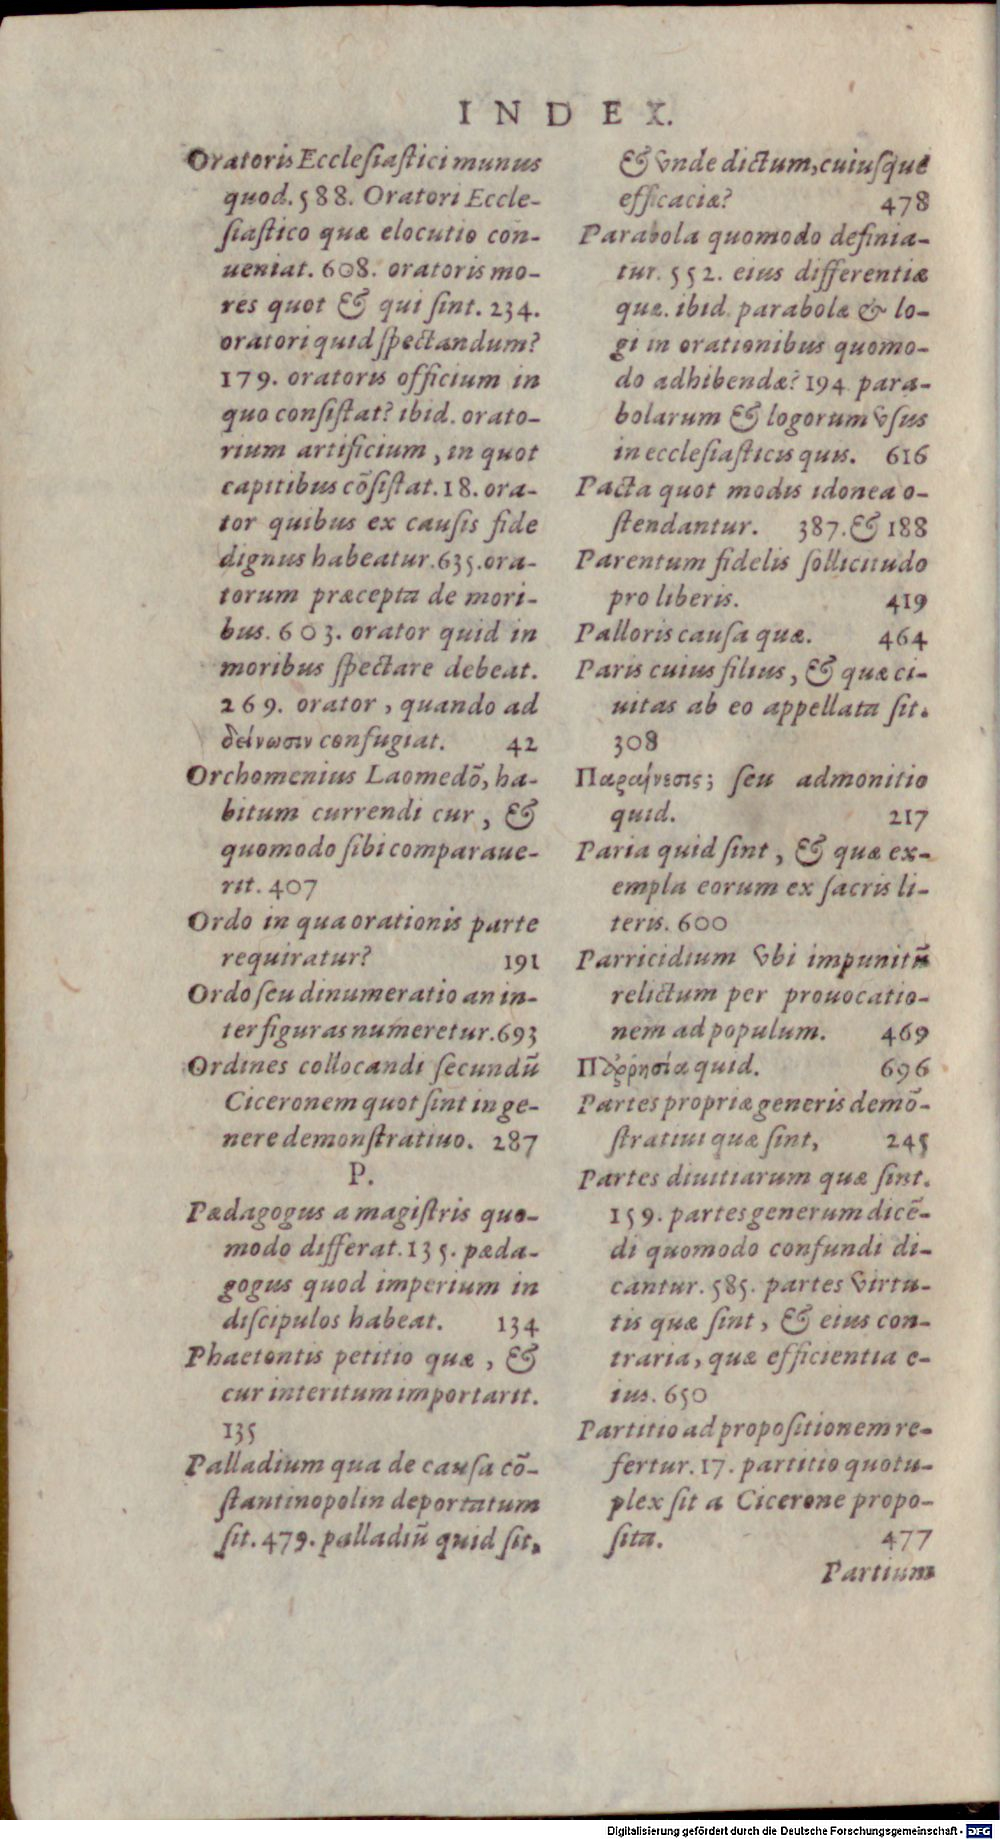 INDEX.
Oratoris Eccleſiaſtici munus
quod. 588. Oratori Eccle-
ſiaſtico quæ elocutio con-
ueniat. 608. oratoris mo-
res quot & qui ſint. 234.
oratori quid ſpectandum?
179. oratoris officium in
quo conſiſtat? ibid. orato-
rium artificium, in quot
capitibus cõſiſtat. 18. ora-
tor quibus ex cauſis fide
dignus habeatur. 635. ora-
torum præcepta de mori-
bus. 603. orator quid in
moribus ſpectare debeat.
269. orator, quando ad
δείνωσιν confugiat. 42
Orchomenius Laomedõ, ha-
bitum currendi cur, &
quomodo ſibi comparaue-
rit. 407
Ordo in qua orationis parte
requiratur? 191
Ordo ſeu dinumeratio an in-
ter figuras numeretur. 693
Ordines collocandi ſecundũ
Ciceronem quot ſint in ge-
nere demonſtratiuo. 287
P.
Pædagogus a magiſtris quo-
modo differat. 135. pæda-
gogus quod imperium in
diſcipulos habeat. 134
Phaetontis petitio quæ, &
cur interitum importarit.
135
Palladium qua de cauſa cõ-
ſtantinopolin deportatum
ſit. 479. palladiũ quid ſit,
& vnde dictum, cuiuſque
efficaciæ? 478
Parabola quomodo definia-
tur. 552. eius differentiæ
quæ. ibid. parabolæ & lo-
gi in orationibus quomo-
do adhibendæ? 194 para-
bolarum & logorum vſus
in eccleſiaſticis quis. 616
Pacta quot modis idonea o-
ſtendantur. 387. & 188
Parentum fidelis ſollicitudo
pro liberis. 419
Palloris cauſa quæ. 464
Paris cuius filius, & quæ ci-
uitas ab eo appellata ſit.
308
Παραίνεσις; ſeu admonitio
quid. 217
Paria quid ſint, & quæ ex-
empla eorum ex ſacris li-
teris. 600
Parricidium vbi impunitũ
relictum per prouocatio-
nem ad populum. 469
Παῤῥησία quid. 696
Partes propriæ generis demõ-
ſtratiui quæ ſint, 245
Partes diuitiarum quæ ſint.
159. partes generum dicẽ-
di quomodo confundi di-
cantur. 585. partes virtu-
tis quæ ſint, & eius con-
traria, quæ efficientia e-
ius. 650
Partitio ad propoſitionem re-
fertur. 17. partitio quotu-
plex ſit a Cicerone propo-
ſita. 477
Partium
Digitalisierung gefördert durch die Deutsche Forschungsgemeinschaft - DFG